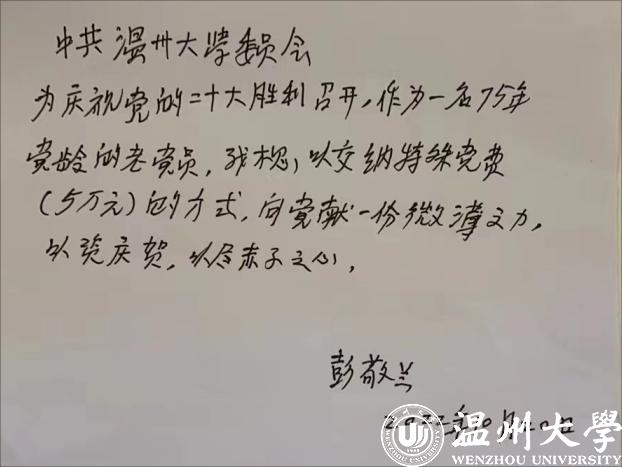 中共温州大学委员会
为庆祝党的二十大胜利召开，作为一名75年
党龄的老党员，我想，以交纳特殊党费
（5万元）的方式，向党献一份微薄之力，
以资庆贺，以尽赤子之心，
彭敬兰
温州大学
WENZHOU UNIVERSITY